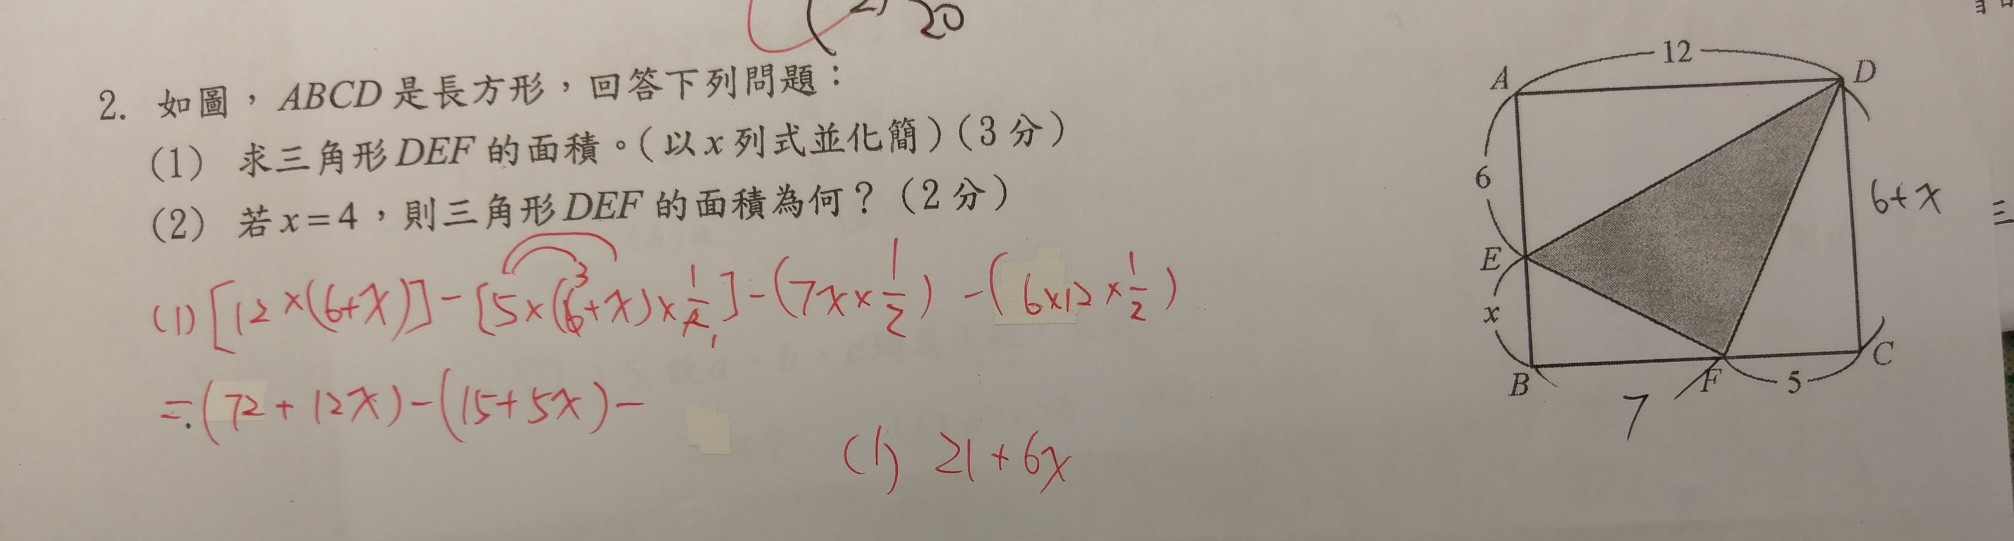 2) 20
2. 如圖，ABCD 是長方形，回答下列問題：
(1) 求三角形 DEF 的面積。(以 x 列式並化簡)(3 分)
(2) 若 x=4，則三角形 DEF 的面積為何？(2 分)
(1) [12×(6+x)]-[5×(6+x)×1/2]-(7x×1/2)-(6×12×1/2)
3
1
=(72+12x)-(15+5x)-
(1) 21+6x
12
A
D
6
6+x
E
x
B
F
5
C
7
三